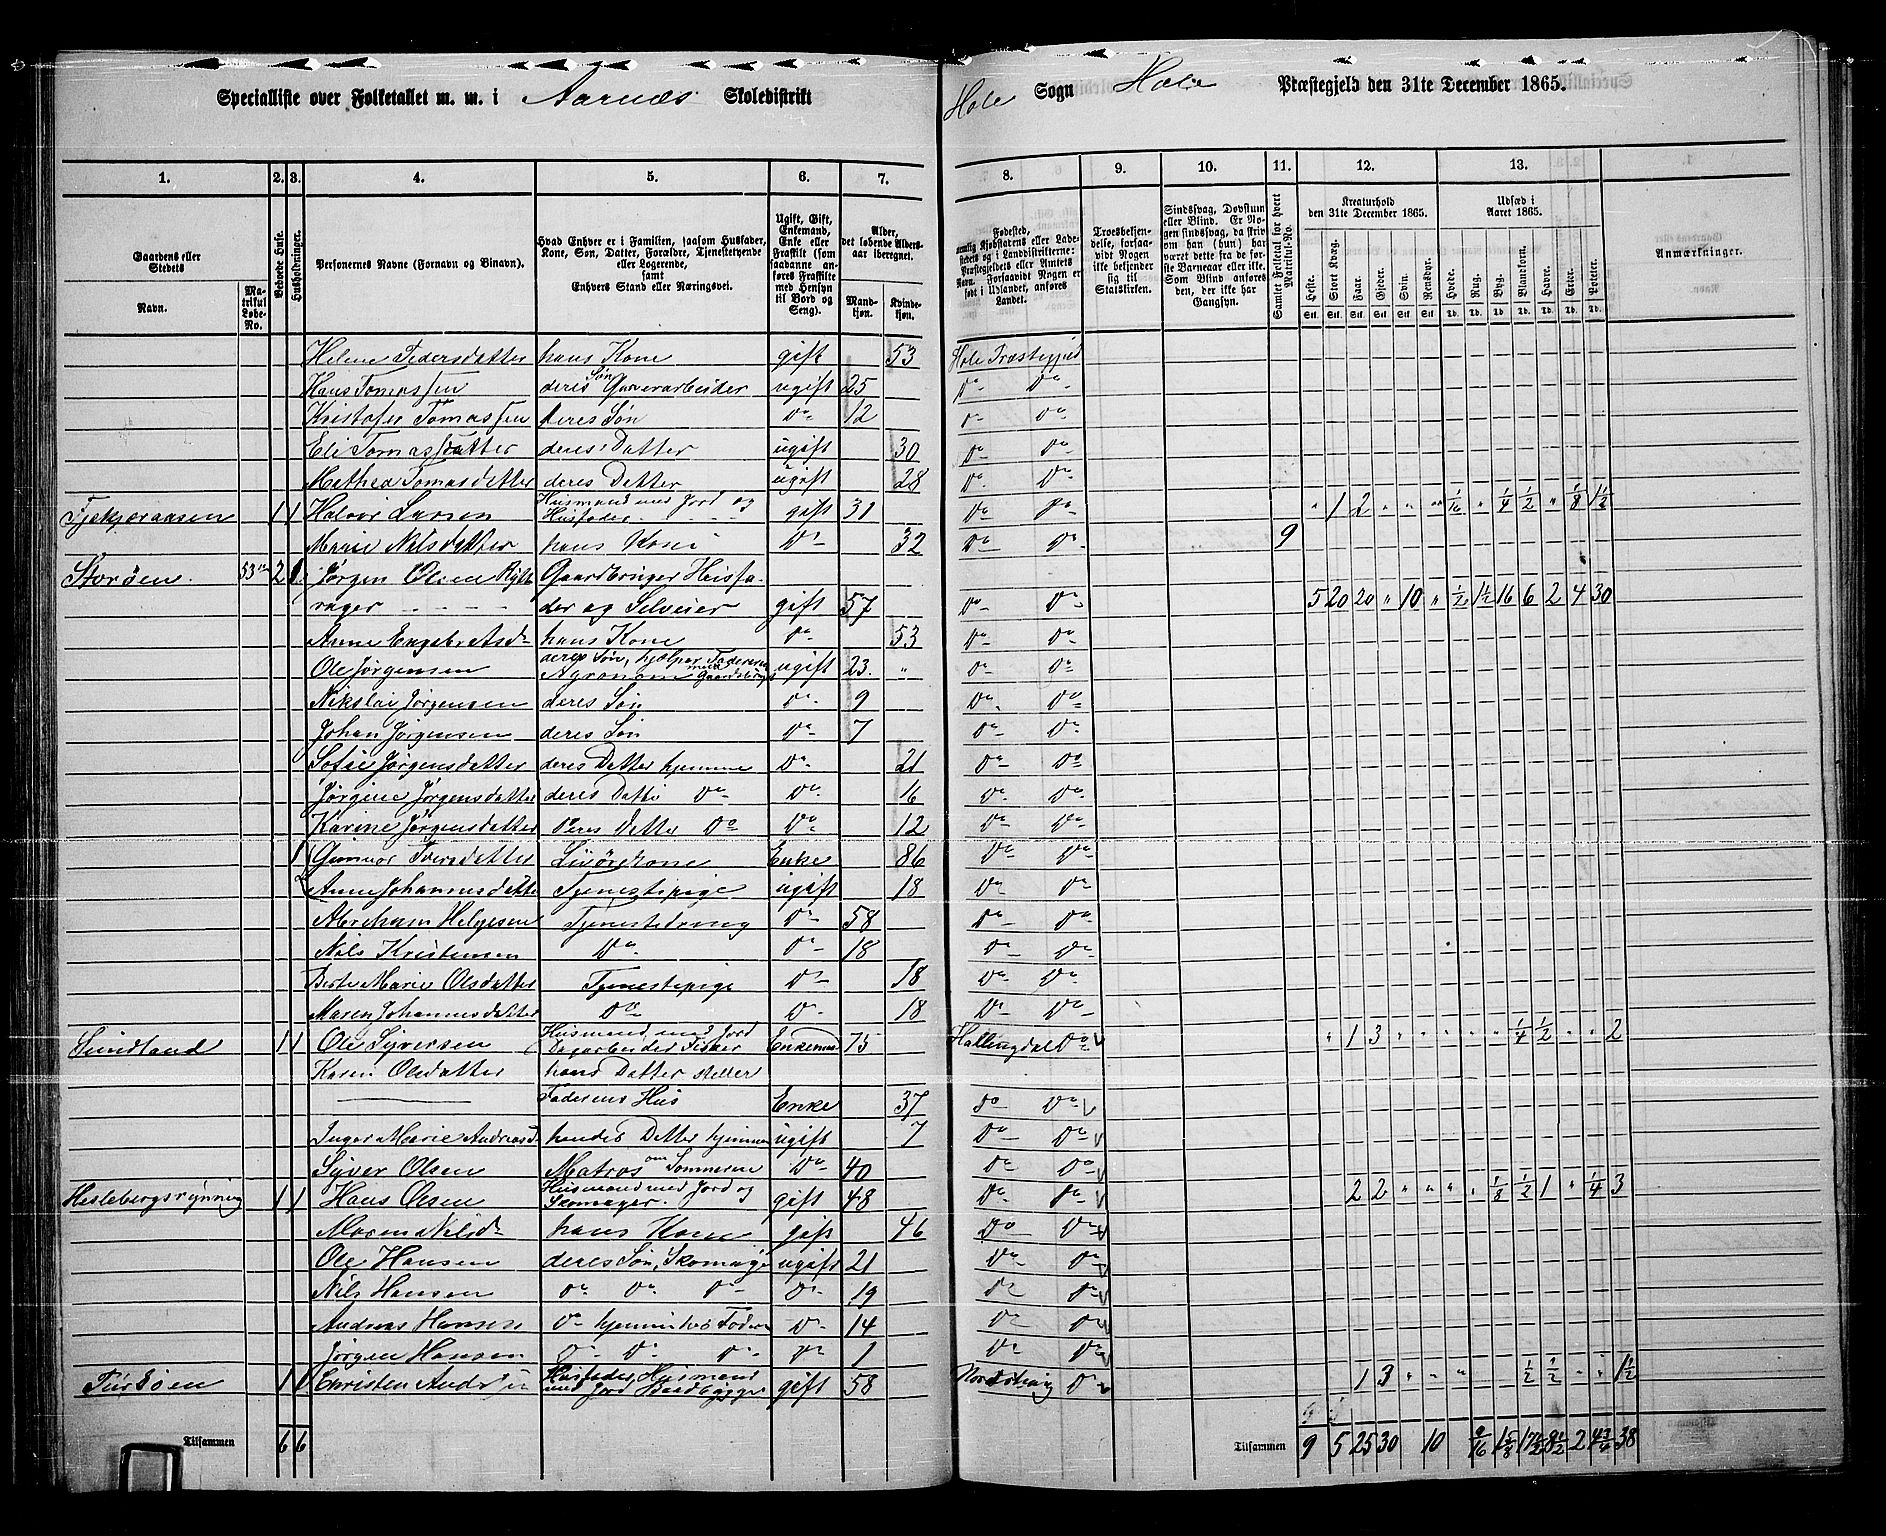 Specialliste over Folketallet m. m. i Aarnæs Skoledistrikt
Hole Sogn Hole Præstegjeld den 31te December 1865.
1. 2. 3. 4. 5. 6. 7. 8. 9. 10. 11. 12. 13.
Gaardens eller Stedets
Navn.
Matrikul Løbe-No.
Beboede Huse.
Husholdninger.
Personernes Navne (Fornavn og Binavn).
Hvad Enhver er i Familien, saasom Husfader, Kone, Søn, Datter, Forældre, Tjenestetyende eller Logerende,
samt
Enhvers Stand eller Næringsvei.
Ugift, Gift, Enkemand, Enke eller Fraskilt (som saadanne anføres Fraskilte med Hensyn til Bord og Seng).
Alder, det løbende Alders-aar iberegnet.
Mandkjøn.
Kvindekjøn.
Fødested, nemlig Kjøbstadens eller Ladestedets og i Landdistrikterne: Præstegjeldets eller Amtets Navn. Forsaavidt Nogen er født i Udlandet, anføres Landet.
Troesbekjendelse, forsaavidt Nogen ikke bekjender sig til Statskirken.
Sindssvag, Døvstum eller Blind. Er Nogen sindssvag, da skriv om han (hun) har været det fra de første Barneaar eller ikke. Som Blind anføres den, der ikke har Gangsyn.
Samlet Folketal for hvert Matrikul-No.
Kreaturhold den 31te December 1865.
Heste. Stort Kvæg. Faar. Gjeder. Svin. Rensdyr.
Udsæd i Aaret 1865.
Hvede. Rug. Byg. Blandkorn. Havre. Erter. Poteter.
Anmærkninger.
Helene Pedersdatter hans Kone gift 53 Hole Præstegjeld
Hans Tomassen deres Søn Garverarbeider ugift 25 Do Do
Kristofer Tomassen deres Søn Do 12 Do Do
Eli Tomasdatter deres Datter ugift 30 Do Do
Mathea Tomasdatter deres Datter ugift 28 Do Do
1 1 Halvor Larsen Husmand med Jord og Husfader gift 31 Do Do " 1 2 " " " 1/16 " 1/4 1/2 " 1/8 1 1/2
Marie Nilsdatter hans Kone Do 32 Do Do 9
Storøen 53 2 1 Jørgen Olsen Gaardbruger Husfa-
der og Selveier gift 57 Do Do 5 20 20 " 10 " 1/2 1 1/2 16 6 2 4 30
Anne Engebr hans Kone Do 53 Do Do
Ole Jørgensen deres Søn, hjælper Faderen med Gaardsbruget Agronom ugift 23 " Do Do
Nikolai Jørgensen deres Søn Do 9 Do Do
Johan Jørgensen deres Søn Do 7 Do Do
Sofie Jørgensdatter deres Datter hjemme Do 21 Do Do
Jørgine Jørgensdatter deres Datter Do Do 16 Do Do
Karine Jørgensdatter deres Datter Do Do 12 Do Do
1 Gunvor Iversdatter Enke 86 Do Do
Anne Johannesdatter Tjenestepige ugift 18 Do Do
Abraham Helgesen Tjenestedreng Do 58 Do Do
Nils Kristensen Do Do 18 Do Do
Berte Marie Olsdatter Tjenestepige Do 18 Do Do
Maren Johannesdatter Do Do 18 Do Do
Sundland 1 1 Ole Syversen Husmand med Jord Dagarbeider Fisker Enkemand 75 Hallingdal Do " 1 3 " " " " " 1/4 1/2 " " 2
Karen Olsdatter hans Datter steller
Faderens Hus Enke 37 Do Do
Inger Marie Andreasd. hendes Datter hjemme ugift 7 Do Do
Syver Olsen Matros om Sommeren Do 40 Do Do
Heslebergsrynning 1 1 Hans Olsen Husmand med Jord og Skomager. gift 48 Do Do 2 2 " " " " 1/8 1/2 1 " 1/4 3
Maren Nilsd. hans Kone gift 46 Do Do
Ole Hansen deres Søn, Skomager ugift 21 Do Do
Nils Hansen Do Do Do Do 19 Do Do
Andreas Hansen Do hjemme hos Fader Do 14 Do Do
Jørgen Hansen Do Do Do Do 1 Do Do
1 1 Christen Husfader, Husmand med Jord gift 58 Do 1 3 " " " 1/2 1/2 " " 1 1/2
Tilsammen 6 6
Tilsammen 9 5 25 30 10 9/16 1 5/8 17 1/2 8 1/2 2 4 3/4 38